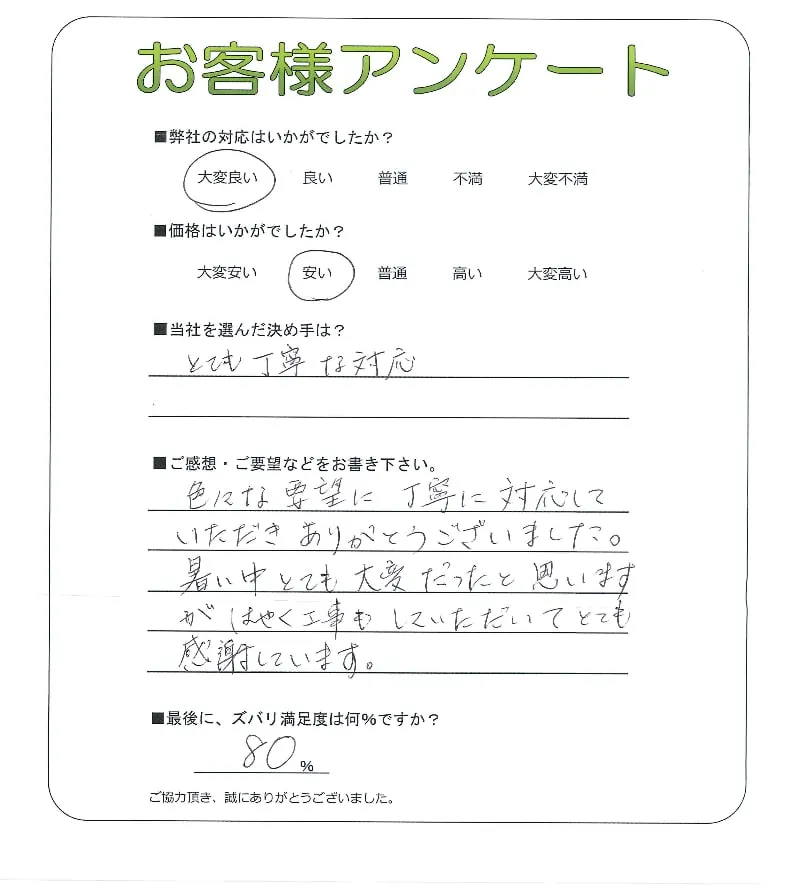 お客様アンケート
■弊社の対応はいかがでしたか？
大変良い 良い 普通 不満 大変不満
■価格はいかがでしたか？
大変安い 安い 普通 高い 大変高い
■当社を選んだ決め手は？
とても丁寧な対応
■ご感想・ご要望などをお書き下さい。
色々な要望に丁寧に対応して
いただきありがとうございました。
暑い中とても大変だったと思います
がはやく工事もしていただいてとても
感謝しています。
■最後に、ズバリ満足度は何％ですか？
80％
ご協力頂き、誠にありがとうございました。